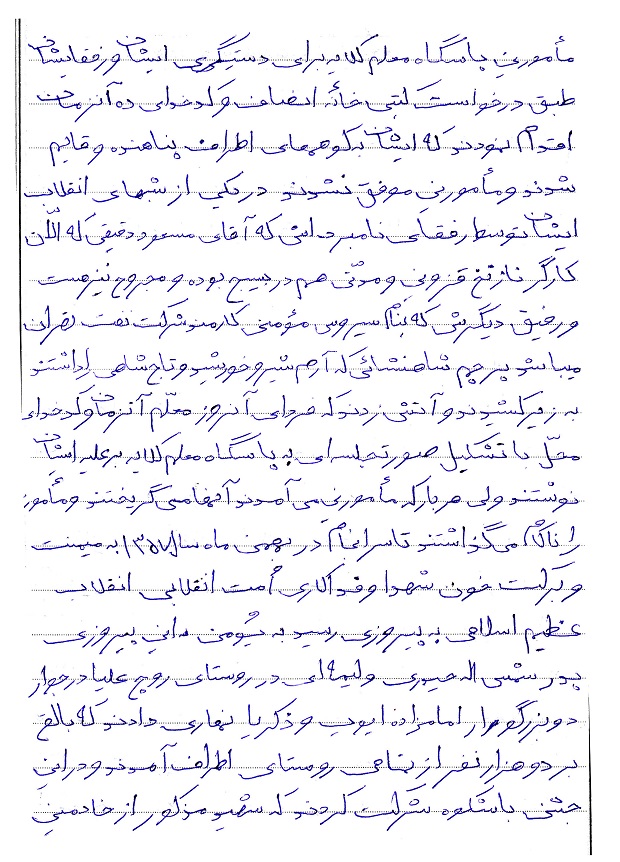 مأمورین پاسگاه معلم کلایه برای دستگیری ایشان و رفقایشان
طبق درخواست کتبی خانه انصاف و کدخدای ده آنزمان
اقدام نمودند که ایشان به کوههای اطراف پناهنده و قایم
شدند و مأمورین موفق نشدند در یکی از شبهای انقلاب
ایشان توسط رفقای نامبرده اش که آقای مسعود دقیقی که الآن
کارگر نازنخ قزوین و مدتی هم در بسیج بوده و مجروح نیز هست
و رفیق دیگرش که بنام سیروس مؤمنی کارمند شرکت نفت تهران
میباشد پرچم شاهنشائی که آرم شیر و خورشید و تاج شاهی را داشتند
به زیر کشیدند و آتش زدند که فردای آنروز معلّم آنزمان و کدخدای
محلّ با تشکیل صورتجلسه ای به پاسگاه معلم کلایه بر علیه ایشان
نوشتند ولی هر بار که مأمورین می آمدند آنها می گریختند و مأمور
را ناکام می گذاشتند تا سرانجام در بهمن ماه سال ۱۳۵۷ به میمنت
و برکت خون شهدا و فداکاری اُمت انقلابی انقلاب
عظیم اسلامی به پیروزی رسید به یُومن این پیروزی
پدر شمس اله حیدری ولیمه ای در روستای روح علیا در جوار
دو بزرگوار امامزاده ایوب و ذکریا نهاری دادند که بالغ
بر دو هزار نفر از تمامی روستای اطراف آمدند و در این
جشن باشکوه شرکت کردند که شهید مذکور از خادمین